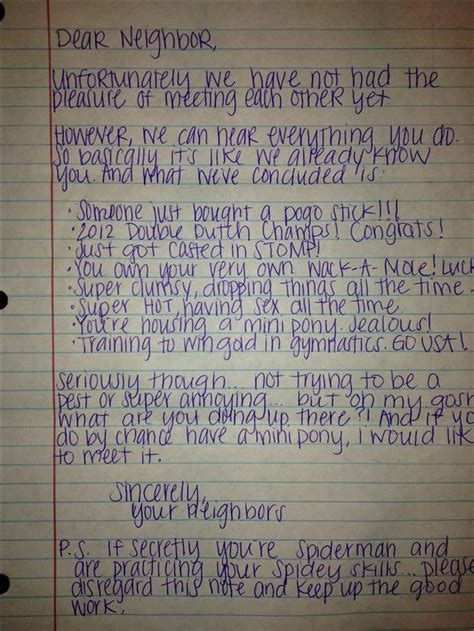 Dear Neighbor,
Unfortunately we have not had the
pleasure of meeting each other yet.
However, we can hear everything you do.
So basically it's like we already know
you. And what we've concluded is:
· Someone just bought a pogo stick!!!
· 2012 Double Dutch Champs! Congrats!
· Just got casted in STOMP!
· You own your very own Wack-A-Mole! Luck
· Super clumsy, dropping things all the time.
· Super HOT, having sex all the time.
· You're housing a mini pony. Jealous!
· Training to win gold in gymnastics. GO USA!
Seriously though... not trying to be a
pest or super annoying... but oh my gosh
what are you doing up there?! And if yo
do by chance have a mini pony, I would lik
to meet it.
Sincerely,
Your Neighbors
P.S. If secretly you're Spiderman and
are practicing your spidey skills... please
disregard this note and keep up the good
work.